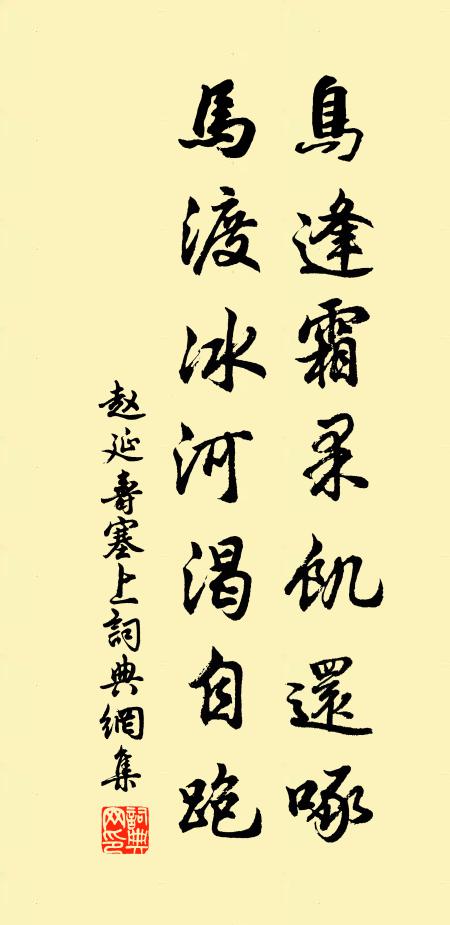 鳥逢霜果飢還啄
馬渡冰河渴自跑
赵延壽塞上詞典網集
詞典网印